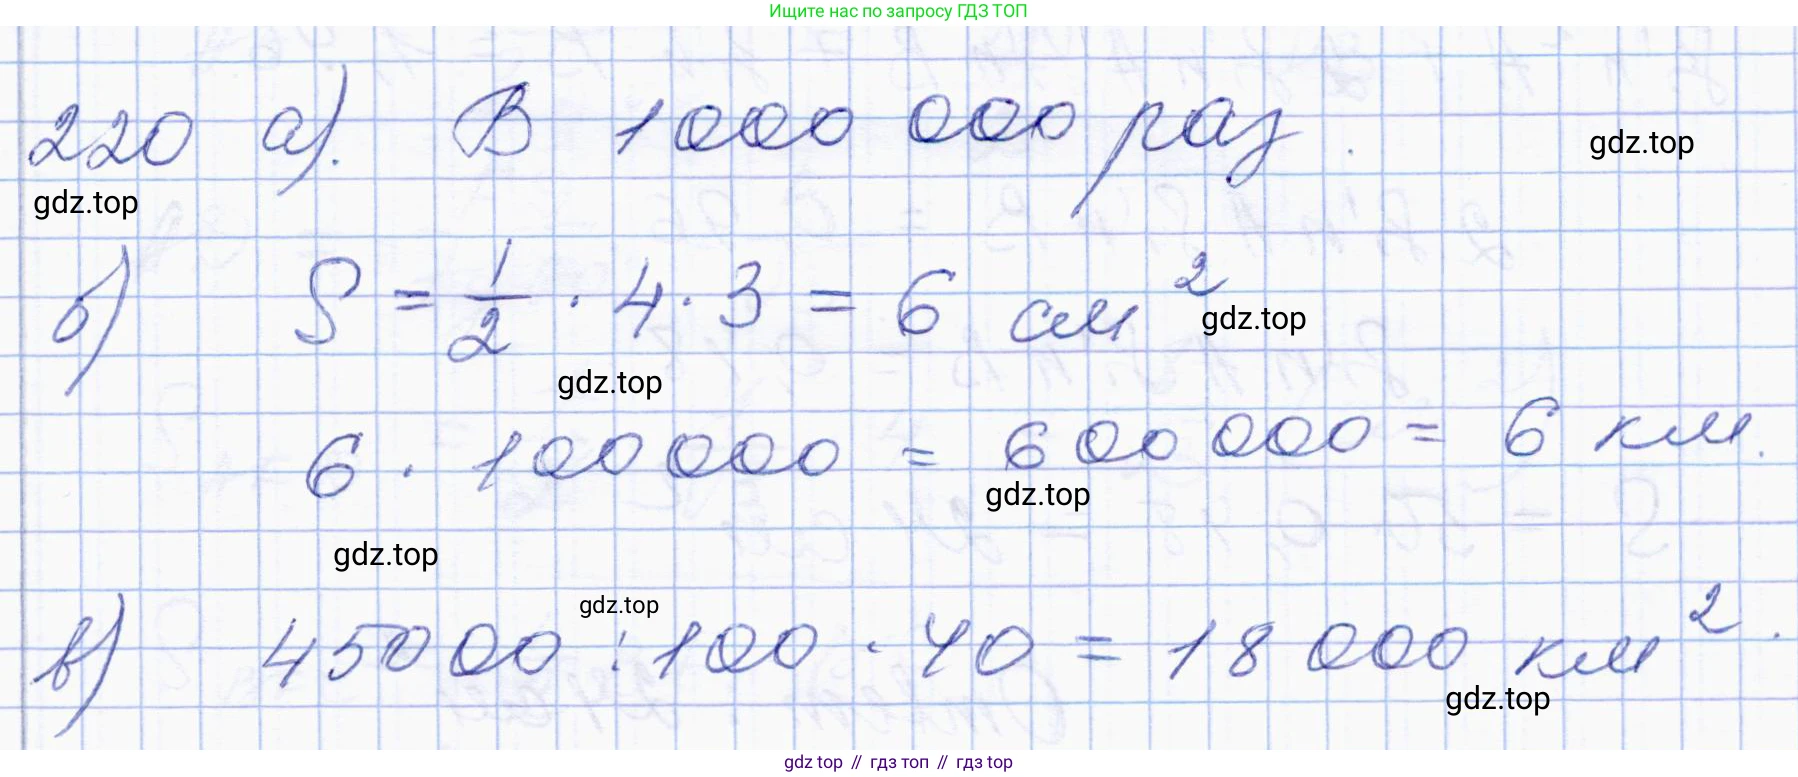 Ищите нас по запросу ГДЗ ТОП
220 а). В 1000 000 раз.
gdz.top
gdz.top
б) S = 1/2 · 4 · 3 = 6 см²
gdz.top
gdz.top
6 · 100 000 = 600 000 = 6 км.
gdz.top
gdz.top
gdz.top
в) 45000 : 100 · 40 = 18 000 км².
gdz.top
gdz top // гдз топ // gdz top